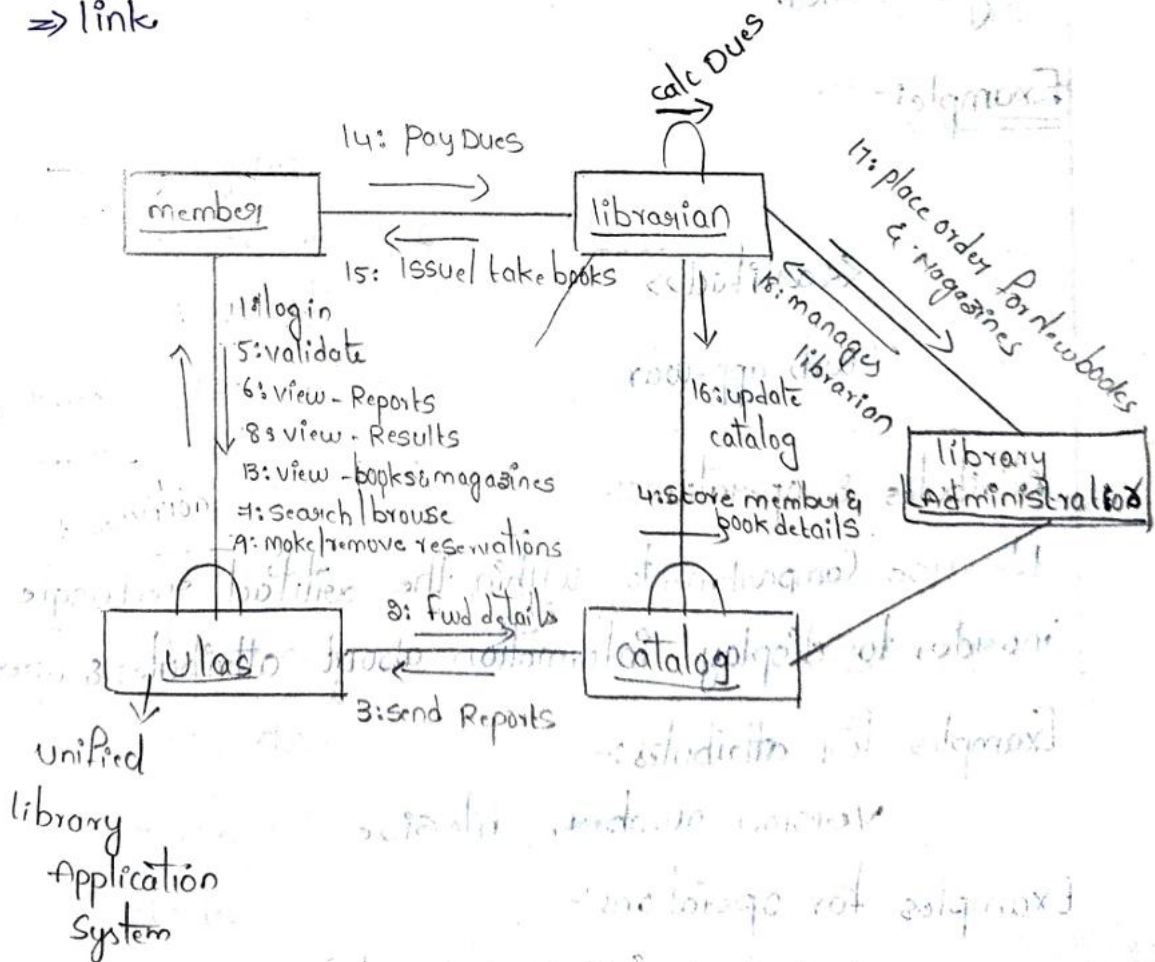 => link
calc Dues
14: Pay Dues
member
librarian
15: Issue/take books
17: place order for New books
& Magazines
18: manages
librarian
1: login
5: validate
6: view - Reports
8: view - Results
13: view - books & magazines
7: search/brouse
9: make/remove reservations
16: update
catalog
4: store member &
book details
library
Administration
2: fwd details
ulas
catalog
3: send Reports
unified
library
Application
System